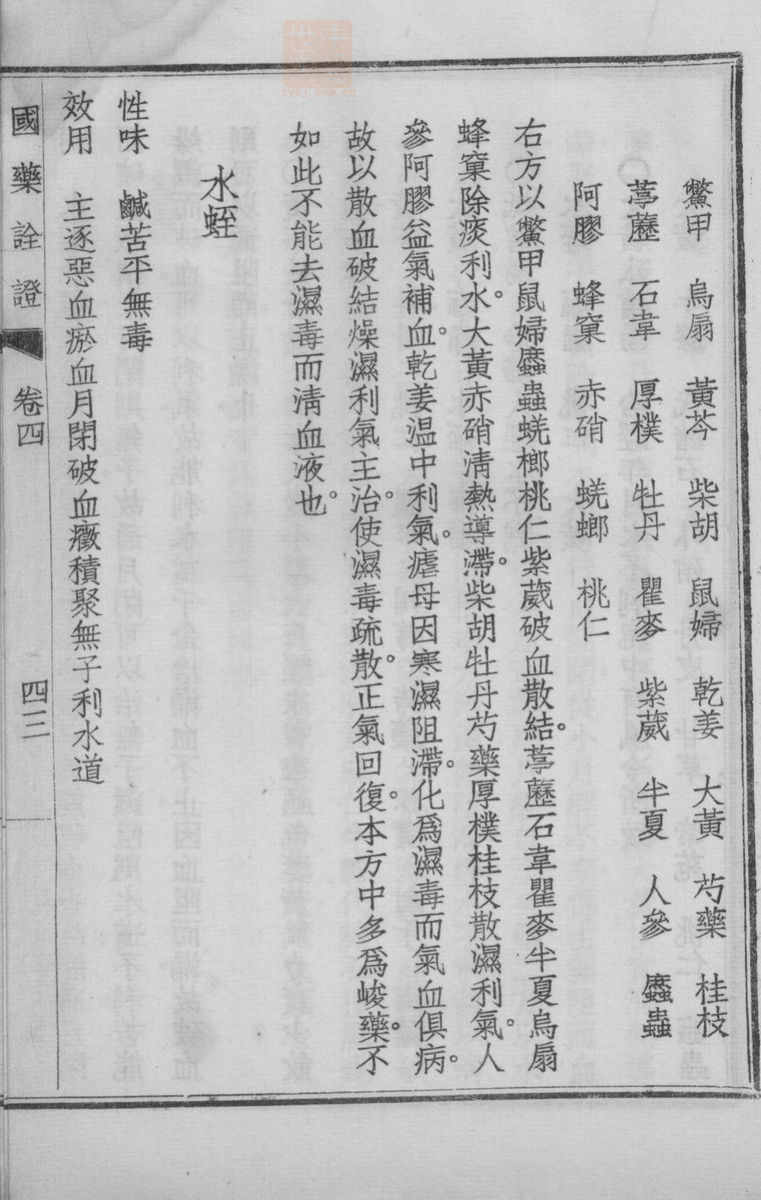 鱉甲　烏扇　黃芩　柴胡　鼠婦　乾姜　大黃　芍藥　桂枝
葶藶　石韋　厚樸　牡丹　瞿麥　紫葳　半夏　人參　䗪蟲
阿膠　蜂窠　赤硝　蜣螂　桃仁
右方以鱉甲鼠婦䗪蟲蜣榔桃仁紫葳破血散結。葶藶石韋瞿麥半夏烏扇
蜂窠除痰利水。大黃赤硝清熱導滯。柴胡牡丹芍藥厚樸桂枝散濕利氣。人
參阿膠益氣補血。乾姜温中利氣。瘧母因寒濕阻滯。化爲濕毒而氣血俱病。
故以散血破結燥濕利氣主治。使濕毒疏散。正氣回復。本方中多爲峻藥。不
如此不能去濕毒而清血液也。
水蛭
性味　鹹苦平無毒
效用　主逐惡血瘀血月閉破血癥積聚無子利水道
國藥詮證　卷四　四三